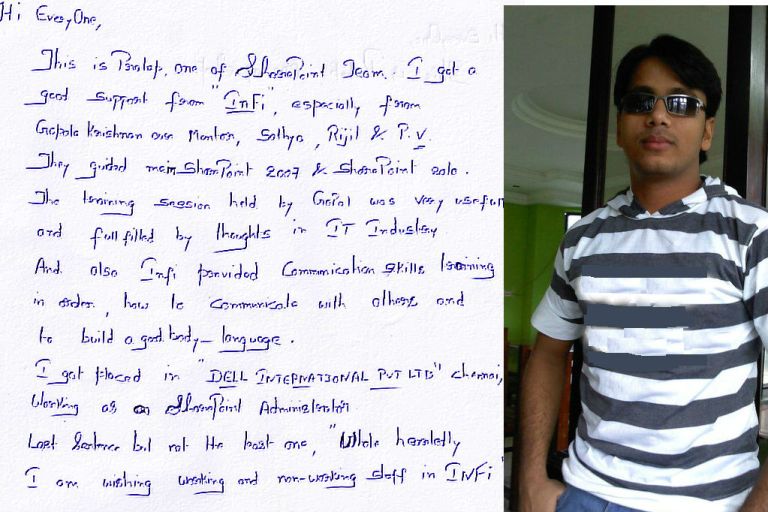 Hi EveryOne,
This is Pratap, one of SharePoint Team. I got a
good support from "InFi", especially from
Gopala Krishnan our Mentor, Sathya, Rijil & P.V.
They guided me in SharePoint 2007 & SharePoint 2010.
The training session held by GoPal was very usefull
and fullfilled by thoughts in IT Industry
And also Infi provided Communication skills training
in order, how to communicate with others and
to build a good body-language.
I got placed in "DELL INTERNATIONAL PVT LTD" chennai,
Working as an SharePoint Administrator
Last Sentence but not the least one, "Whole heartedly
I am wishing working and non-working staff in INFi